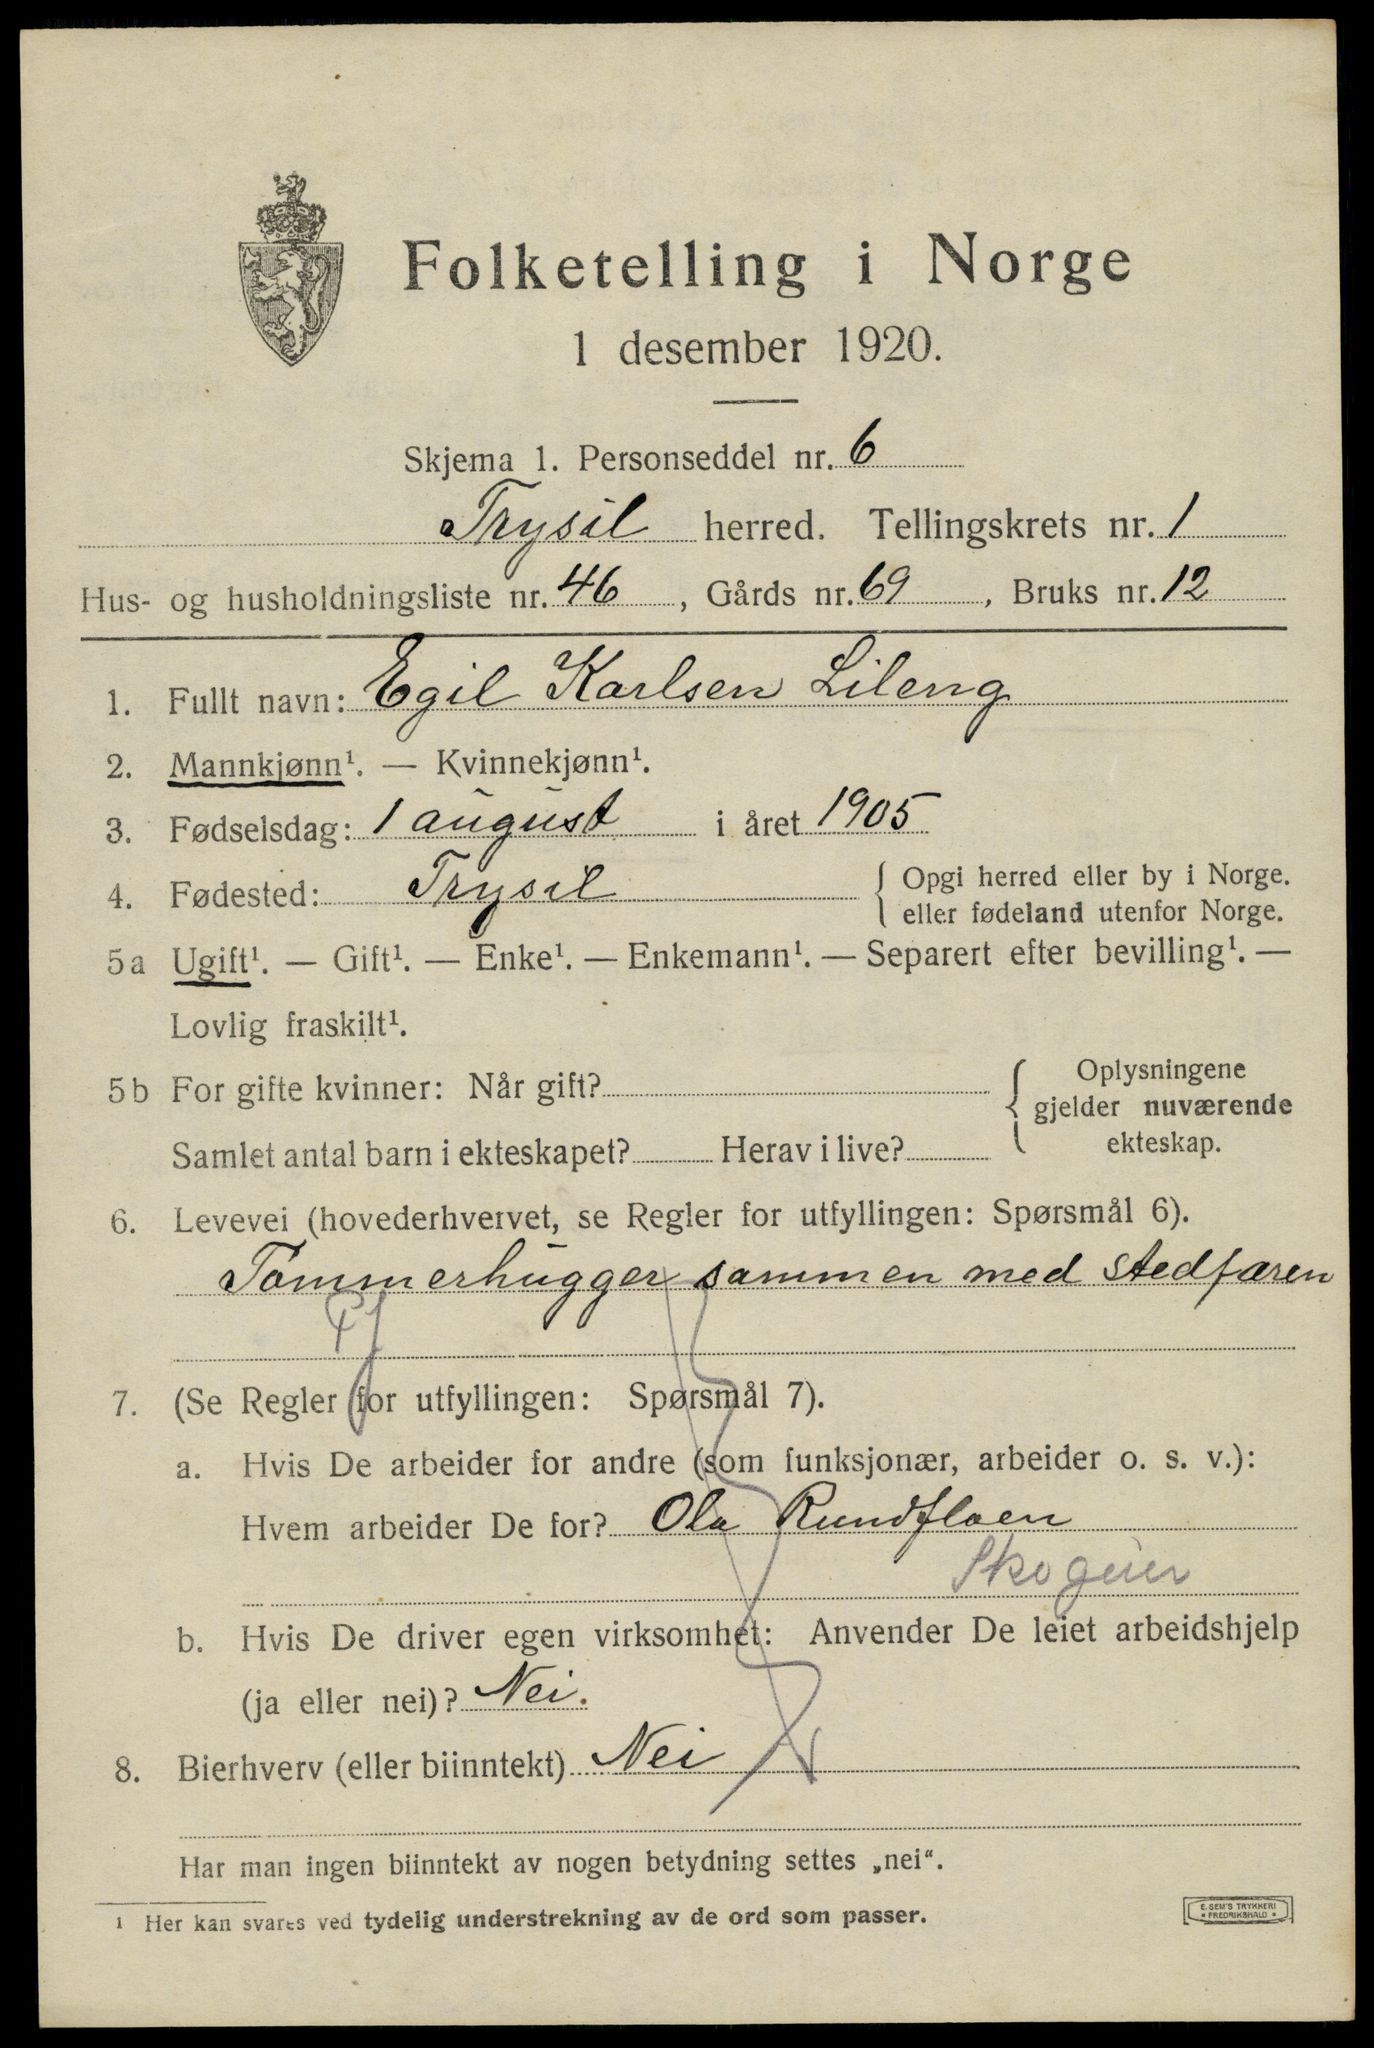 Folketelling i Norge
1 desember 1920.
Skjema 1. Personseddel nr. 6
Trysil herred. Tellingskrets nr. 1
Hus- og husholdningsliste nr. 46, Gårds nr. 69, Bruks nr. 12
1. Fullt navn: Egil Karlsen Lileng
2. Mannkjønn¹. — Kvinnekjønn¹.
3. Fødselsdag: 1 august i året 1905
4. Fødested: Trysil { Opgi herred eller by i Norge.
eller fødeland utenfor Norge.
5a Ugift¹. — Gift¹. — Enke¹. — Enkemann¹. — Separert efter bevilling¹. —
Lovlig fraskilt¹.
5b For gifte kvinner: Når gift? { Oplysningene
gjelder nuværende
Samlet antal barn i ekteskapet? Herav i live? ekteskap.
6. Levevei (hovederhvervet, se Regler for utfyllingen: Spørsmål 6).
Tømmerhugger sammen med stedfaren
7. (Se Regler for utfyllingen: Spørsmål 7).
a. Hvis De arbeider for andre (som funksjonær, arbeider o. s. v.):
Hvem arbeider De for? Ola Rundfloen
Skogeier
b. Hvis De driver egen virksomhet: Anvender De leiet arbeidshjelp
(ja eller nei)? Nei.
8. Bierhverv (eller biinntekt) Nei
Har man ingen biinntekt av nogen betydning settes „nei“.
¹ Her kan svares ved tydelig understrekning av de ord som passer.
E. SEM'S TRYKKERI
• FREDRIKSHALD •